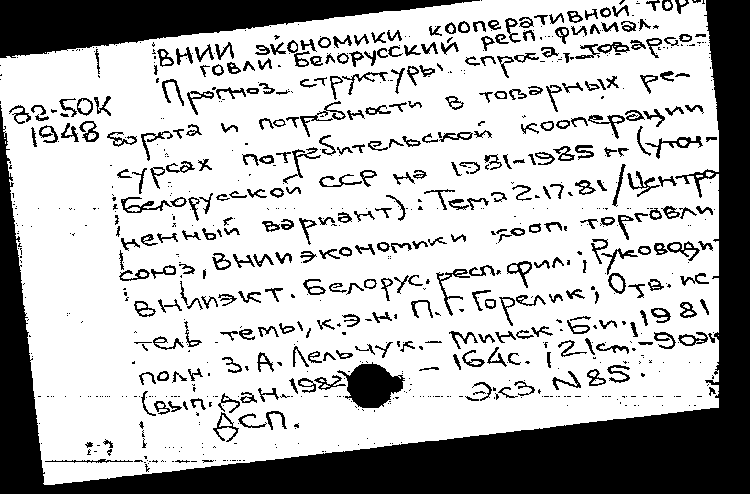 ВНИИ экономики кооперативной тор-
говли. Белорусский респ. филиал.
Прогноз структуры спроса, товароо-
82-50К
1948
борота и потребности в товарных ре-
сурсах потребительской кооперации
Белорусской ССР на 1981-1985 гг (уточ-
ненный вариант): Тема 2.17.81 / Центро
союз, ВНИИ экономики кооп. торговли
ВНИИЭКТ. Белорус. респ. фил.; Руководи-
тель темы, к.э.н. П.Г. Горелик; Отв. ис-
полн. З.А. Лельчук. - Минск: Б.и., 1981
(вып. дан. 1982) - 164с.; 21 см. - 90эк
Экз. N 85.
ДСП.